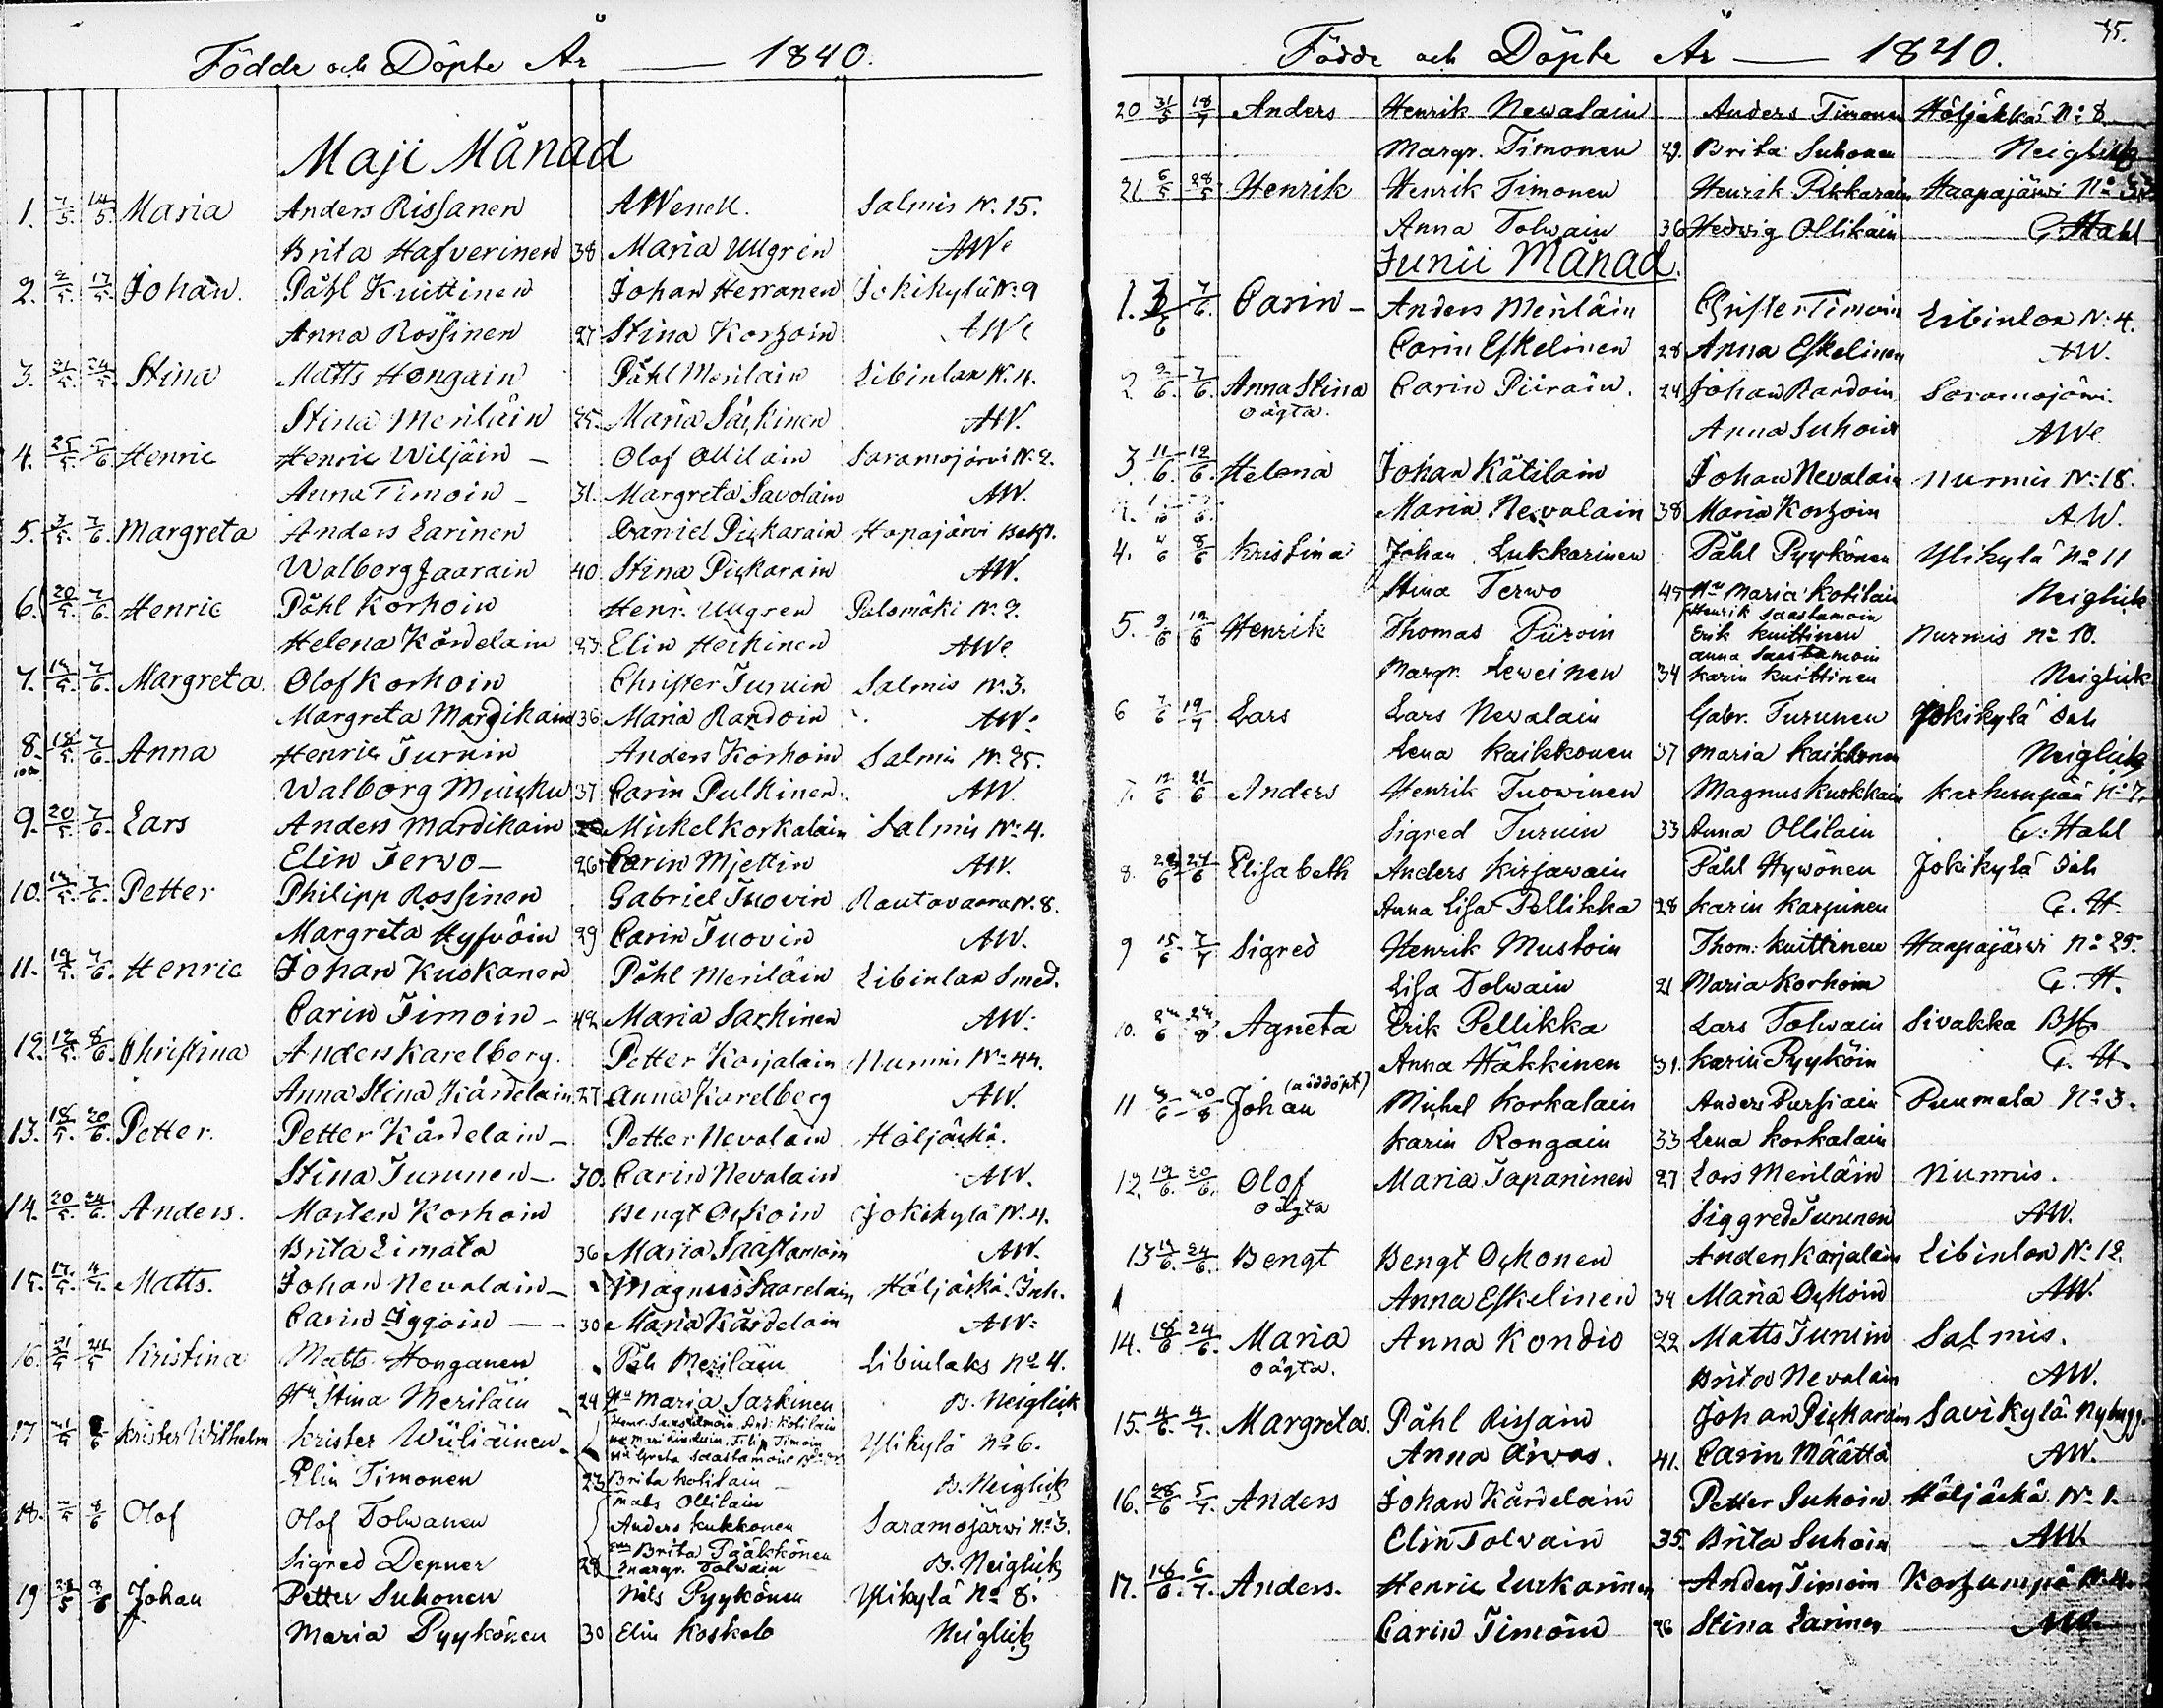 Födde och Döpte År — 1840.
Maji Månad
1. 7/5. 14/5. Maria Anders Rissanen AWenell. Salmis N. 15.
Brita Hafverinen 38 Maria Ullgren AWe
2. 2/5. 17/5. Johan. Påhl Kuittinen Johan Herranen Jokikylä N:9
Anna Rossinen 27 Stina Korhoin AWe
3. 21/5. 24/5. Stina Matts Hongain Påhl Merilain Libinlax N. 4.
Stina Meriläin 25. Maria Särkinen AW.
4. 25/5. 5/6. Henric Henric Wiljäin — Olof Ollilain Saramojärvi N. 2.
Anna Timoin — 31. Margreta Savolain AW.
5. 7/5. 7/6. Margreta Anders Larinen Daniel Pickarain Hapajärvi
Walborg Jaarain 40 Stina Pickarain AW.
6. 20/5. 7/6. Henric Påhl Korhoin Henr. Ullgren Palomäki N. 2.
Helena Kårdelain 23. Elin Heikinen AWe.
7. 14/5. 7/6. Margreta. Olof Korhoin Christer Turuin Salmis N. 3.
Margreta Mardikain 36 Maria Randoin AW.
8. 18/5. 7/6. Anna Henric Turuin Anders Korhoin Salmis N. 25.
Walborg Muicku 37 Carin Pulkinen. AW.
9. 20/5. 7/6. Lars Anders Mardikain Mickel Korkalain Salmis N:4.
Elin Terwo — 26 Carin Mjettin AW.
10. 14/5. 7/6. Petter Philipp Rossinen Gabriel Tuovin Rautavaara N. 8.
Margreta Hyfvöin 29 Carin Tuovin AW.
11. 19/5. 7/6. Henric Johan Kuskanen Påhl Meriläin Libinlax Smed.
Carin Timoin — 42 Maria Sarkinen AW.
12. 12/5. 8/6. Christina Anders Karelberg. Petter Karjalain Nurmis N:44.
Anna Stina Kårdelain 27 Anna Karelberg AW.
13. 18/5. 20/6. Petter. Petter Kårdelain — Petter Nevalain Höljäckä.
Stina Turunen — 30. Carin Nevalain AW.
14. 20/5. 24/6. Anders. Morten Korhoin Bengt Ockoin Jokikylä N. 4.
Brita Limata 36 Maria Saastamoin AW.
15. 17/5. 4/7. Matts. Johan Nevalain — Magnus Saarelain Höljäckä. Inh.
Carin Iggoin — 30 Maria Kårdelain AW.
16. 21/5 24/5 Kristina Matts Honganen Påh Meriläin Libinlaks No 4.
Hu Stina Meriläin 24 Hu Maria Sarkinen B. Neiglick
17 Krister Wilhelm Krister Wiiliäinen Henr. Saastamoin. And. Kotilain
Filip Timoin Ylikylä No 6.
Greta Saastamoin
Elin Timonen 23 Brita Kotilain B. Neiglick
18. 8/6 Olof Olof Tolwanen Mats Ollilain
Anders Kukkonen Saramojärwi No 3.
Brita Pääkkönen
Sigred Depner 28 Margr. Tolwain B. Neiglick
19 8/6 Johan Petter Suhonen Nils Pyykönen Ylikylä No 8.
Maria Pyykönen 30 Elin Koskelo Neiglick
55.
Födde och Döpte År — 1840.
20 31/5 18/7 Anders Henrik Newalain Anders Timonen Höljäkkä No 8
Margr. Timonen 29. Brita Suhonen Neiglick
21. 6/5 28/5 Henrik Henrik Timonen Henrik Pikkarain Haapajärwi No
Anna Tolwain 36 Hedwig Ollikain G. Hahl
Junii Månad.
1. 7/6. Carin — Anders Meriläin Christer Timoin Libinlax N. 4.
Carin Eskelinen 28 Anna Eskelinen AW.
2. 2/6. 7/6. Anna Stina Carin Piirain. 24 Johan Randoin Saramojärvi.
oägta. Anna Suhoin AWe.
3. 11/6. 12/6. Helena Johan Kätilain Johan Nevalain Nurmis N:18.
Maria Nevalain 38 Maria Korhoin AW.
4. 4/6 8/6 Kristina Johan Lukkarinen Påhl Pyykönen Ylikylä No 11
Stina Terwo 45 Hu Maria Kotilain Neiglick
Henrik Saastamoin
5. 9/6 12/6 Henrik Thomas Piiroin Erik Kuittinen Nurmis No 10.
Anna Saastamoin
Margr. Leweinen 34 Karin Kuittinen Neiglick
6 7/6 19/7 Lars Lars Newalain Gabr. Turunen Jokikylä Inh
Lena Kaikkonen 37 Maria Kaikkonen Neiglick
7. 12/6 21/6 Anders Henrik Tuowinen Magnus Kuokkain Karhunpää No 7.
Sigred Turuin 33 Anna Ollilain G. Hahl
8. 22/6 24/6 Elisabeth Anders Kirjawain Påhl Hywönen Jokikylä Inh
Anna Lisa Pellikka 28 Karin Karpinen G. H.
9 15/6 7/7 Sigred Henrik Mustoin Thom: Kuittinen Haapajärwi No 25.
Lisa Tolwain 21 Maria Korhoin G. H.
10. 24/6 24/8 Agneta Erik Pellikka Lars Tolwain Sivakka BH.
Anna Häkkinen 31. Karin Pyyköin G. H.
11 (nöddöpt) Johan Michel Korkalain Anders Pursiain Puumala No 3.
Karin Rongain 33 Lena Korkalain
12. 19/6. 20/6. Olof Maria Tapaninen 27 Lars Meriläin Nurmis.
oägta Siggred Turunen AW.
13 13/6. 24/6. Bengt Bengt Ockonen Anders Karjalain Libinlax N:12.
Anna Eskelinen 34 Maria Ockoin AW.
14. 18/6 24/6. Maria Anna Kondio 22 Matts Turuin Salmis.
oägta. Brita Nevalain AW.
15. 4/6. 4/7. Margreta. Påhl Rissain Johan Pickarain Savikylä Nybygg.
Anna Arvas. 41. Carin Määttä AW.
16. 28/6 5/7. Anders Johan Kårdelain Petter Suhoin Höljäckä N. 1.
Elin Tolvain 35. Brita Suhoin AW.
17. 18/6. 6/7. Anders. Henric Luckarinen Anders Timoin Korhumpä N:4.
Carin Timoin 26 Stina Larinen AW.